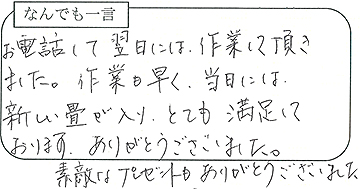 なんでも一言
お電話して翌日には、作業して頂き
ました。作業も早く、当日には、
新しい畳が入り、とても満足して
おります。ありがとうございました。
素敵なプレゼントもありがとうございました